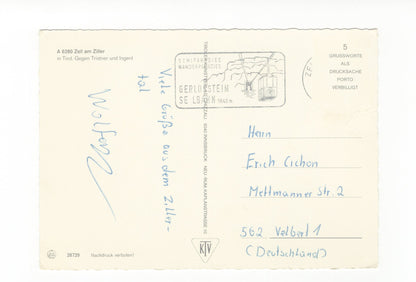 A 6280 Zell am Ziller
in Tirol. Gegen Tristner und Ingent
Viele Grüße aus dem Ziller-
tal
Wolfgang
26729
Nachdruck verboten!
SKIPARADIES
WANDERPARADIES
GERLOSSTEIN
SEILBAHN 1645 m
5
GRUSSWORTE
ALS
DRUCKSACHE
PORTO
VERBILLIGT
Herrn
Erich Cichon
Mettmanner Str. 2
562 Velbert 1
(Deutschland)